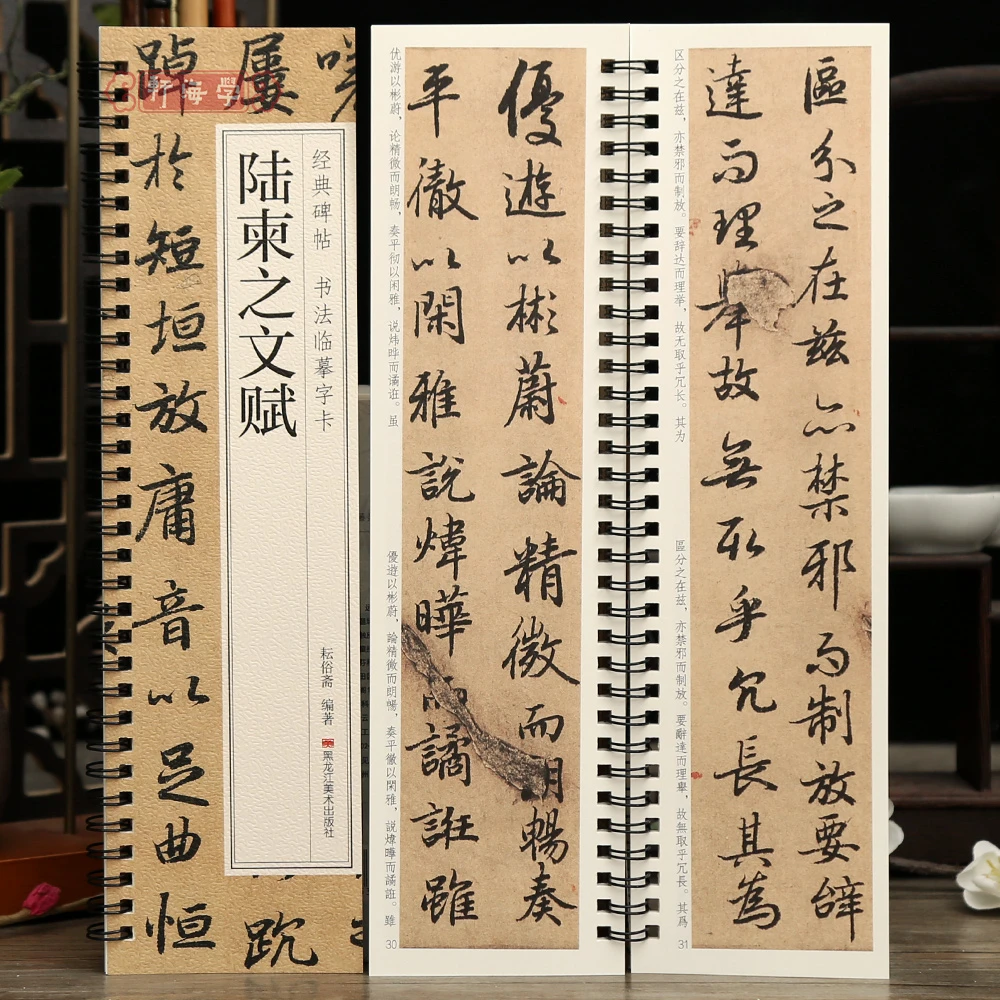 踔於短垣放庸音以足曲恒
屢
轩海学
经典碑帖 书法临摹字卡
陆柬之文赋
耘俗斋 编著
黑龙江美术出版社
優遊以彬蔚論精微而朗暢奏
平徹以閑雅說煒曄而譎誑雖
优游以彬蔚，论精微而朗畅，奏平彻以闲雅，说炜晔而谲诳。虽
優遊以彬蔚，論精微而朗暢，奏平徹以閑雅，說煒曄而譎誑。雖
30
區分之在茲亦禁邪而制放要辭
達而理舉故無取乎冗長其為
区分之在兹，亦禁邪而制放。要辞达而理举，故无取乎冗长。其为
區分之在茲，亦禁邪而制放。要辭達而理舉，故無取乎冗長。其爲
31